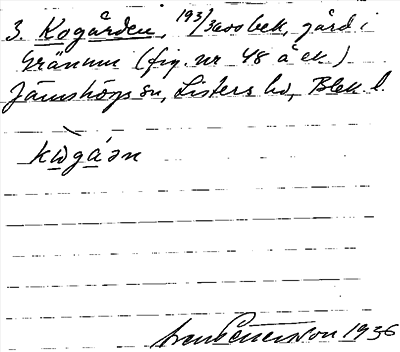 3. Kogården, 193/3600 bek, gård i
Gränum (fig. nr 48 å ek)
Jämshögs sn, Listers hd, Blek. l.
kẁgǻən
Sven Benson 1936